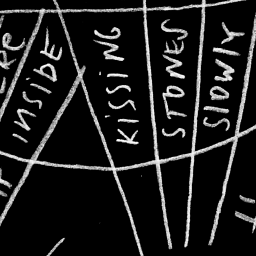 INSIDE
KISSING
STONES
SLOWLY